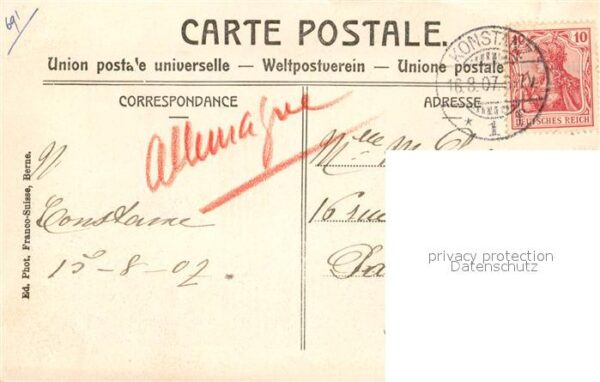 691
CARTE POSTALE.
Union postale universelle. — Weltpostverein. — Unione postale
CORRESPONDANCE
ADRESSE
KONSTANZ
16.8.07.
* 1
10
DEUTSCHES REICH
Allemagne
Mlle M.
16 rue
Constance
15-8-07
Ed. Phot. Franco-Suisse, Berne.
privacy protection
Datenschutz